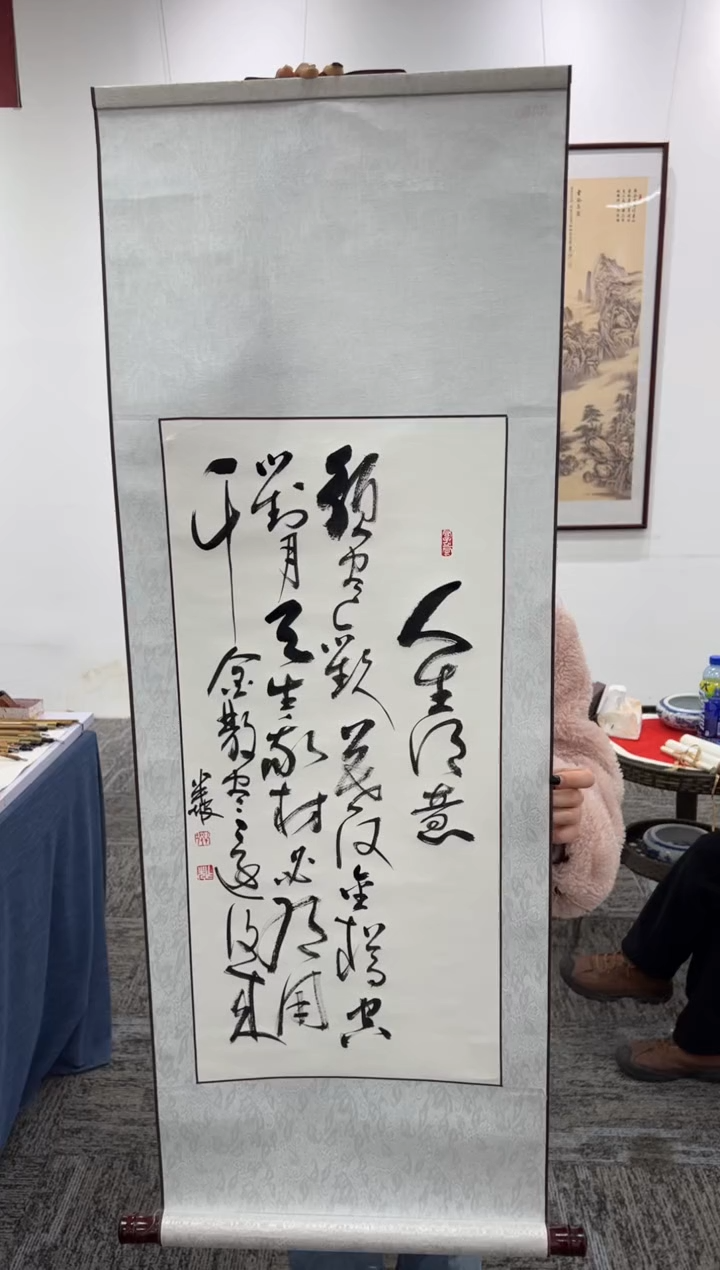 人生得意
須尽歡莫使金樽空
對月天生我材必有用
千金散尽還復来